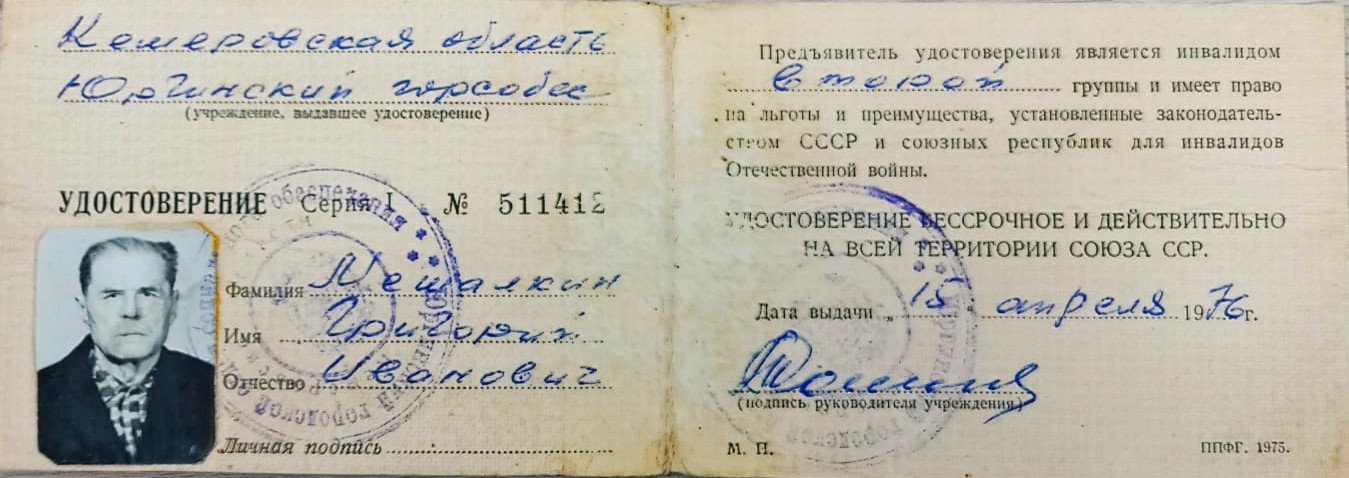 Кемеровская область
Юргинский горсобес
(учреждение, выдавшее удостоверение)
УДОСТОВЕРЕНИЕ Серия I № 511412
Фамилия Мешалкин
Имя Григорий
Отчество Иванович
Личная подпись
Предъявитель удостоверения является инвалидом
второй группы и имеет право
на льготы и преимущества, установленные законодатель-
ством СССР и союзных республик для инвалидов
Отечественной войны.
УДОСТОВЕРЕНИЕ БЕССРОЧНОЕ И ДЕЙСТВИТЕЛЬНО
НА ВСЕЙ ТЕРРИТОРИИ СОЮЗА ССР.
Дата выдачи „15" апреля 1976г.
(подпись руководителя учреждения)
М. П. ППФГ. 1975.